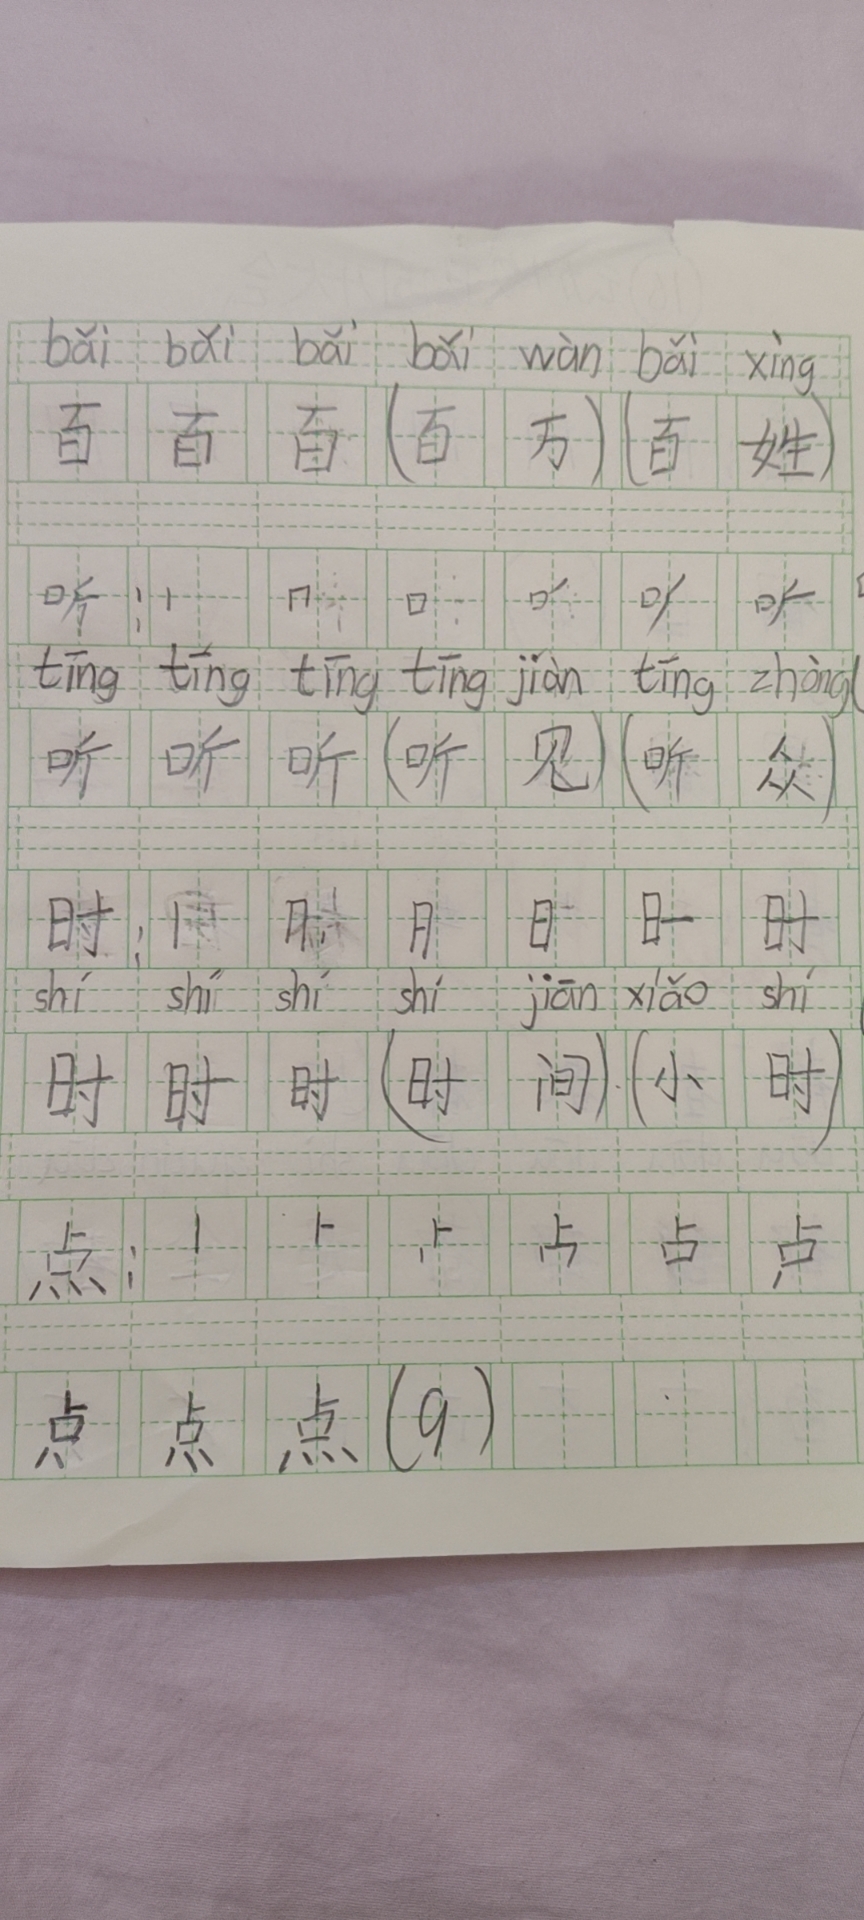 bǎi bǎi bǎi bǎi wàn bǎi xìng
百 百 百 (百 万) (百 姓)
听: 丨 冂 口 听
tīng tīng tīng tīng jiàn tīng zhòng (
听 听 听 (听 见) (听 众)
时: 丨 月 月 日 时
shí shí shí shí jiān xiǎo shí
时 时 时 (时 间) (小 时)
点: 丨 卜 占 点
点 点 点 (9)